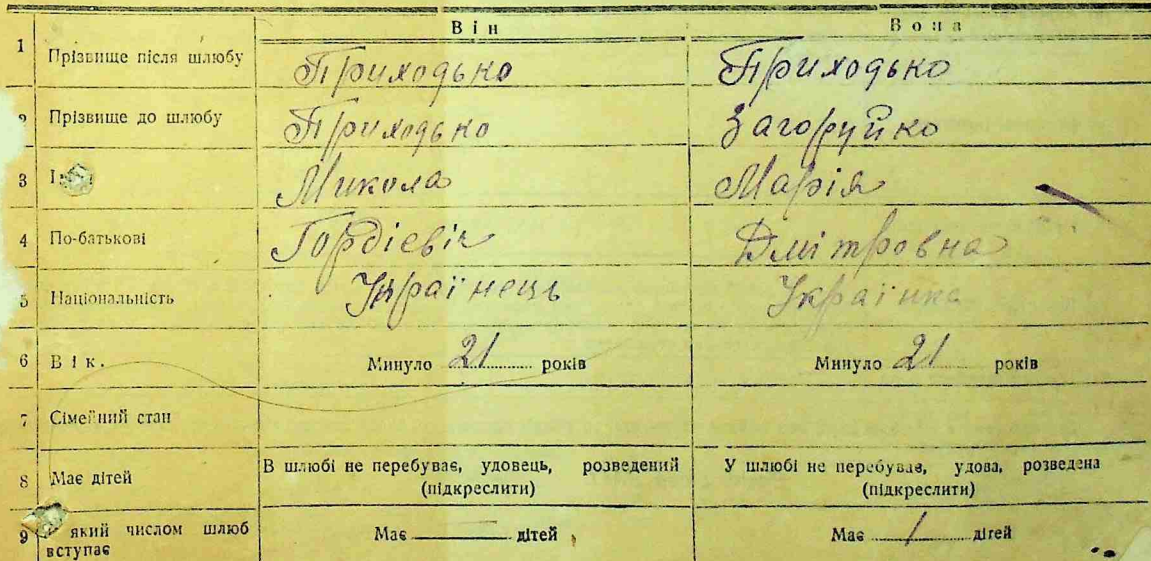 Він Вона
1 Прізвище після шлюбу Приходько Приходько
Прізвище до шлюбу Приходько Загоруйко
3 Микола Марія
4 По-батькові Гордієвіч Дмітровна
5 Національність Українець Українка
6 Вік. Минуло 21 років Минуло 21 років
7 Сімейний стан
8 Має дітей В шлюбі не перебуває, удовець, розведений У шлюбі не перебуває, удова, розведена
(підкреслити) (підкреслити)
9 який числом шлюб Має — дітей Має 1 дітей
вступає